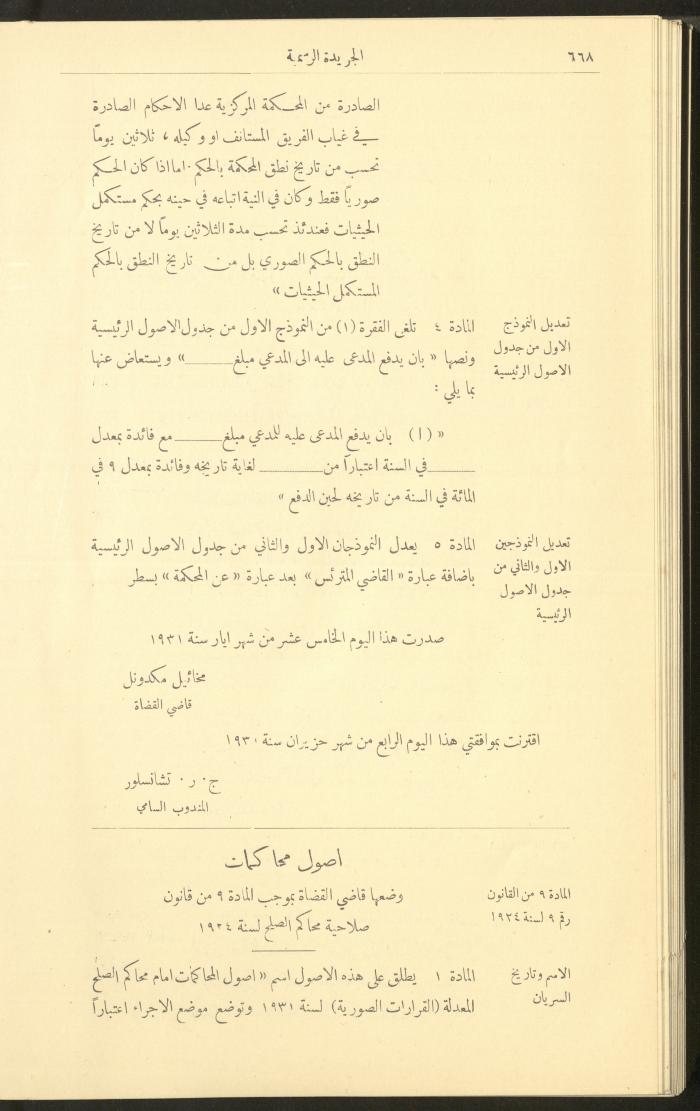 ٦٦٨
الجريدة الرسمية
الصادرة من المحكمة المركزية عدا الاحكام الصادرة
في غياب الفريق المستانف او وكيله ، ثلاثين يوماً
تحسب من تاريخ نطق المحكمة بالحكم · اما اذا كان الحكم
صورياً فقط وكان في النية اتباعه في حينه بحكم مستكمل
الحيثيات فعندئذ تحسب مدة الثلاثين يوماً لا من تاريخ
النطق بالحكم الصوري بل من تاريخ النطق بالحكم
المستكمل الحيثيات »
تعديل النموذج
الاول من جدول
الاصول الرئيسية
المادة ٤ تلغى الفقرة (١) من النموذج الاول من جدول الاصول الرئيسية
ونصها « بان يدفع المدعى عليه الى المدعي مبلغ ــــــــ » ويستعاض عنها
بما يلي :
« (أ) بان يدفع المدعى عليه للمدعي مبلغ ــــــــ مع فائدة بمعدل
ــــــــ في السنة اعتباراً من ــــــــ لغاية تاريخه وفائدة بمعدل ٩ في
المائة في السنة من تاريخه لحين الدفع »
تعديل النموذجين
الاول والثاني من
جدول الاصول
الرئيسية
المادة ٥ يعدل النموذجان الاول والثاني من جدول الاصول الرئيسية
باضافة عبارة « القاضي المترئس » بعد عبارة « عن المحكمة » بسطر
صدرت هذا اليوم الخامس عشر من شهر ايار سنة ١٩٣١
مخائيل مكدونل
قاضي القضاة
اقترنت بموافقتي هذا اليوم الرابع من شهر حزيران سنة ١٩٣٠
ج · ر · تشانسلور
المندوب السامي
اصول محاكمات
المادة ٩ من القانون
رقم ٩ لسنة ١٩٢٤
وضعها قاضي القضاة بموجب المادة ٩ من قانون
صلاحية محاكم الصلح لسنة ١٩٢٤
الاسم وتاريخ
السريان
المادة ١ يطلق على هذه الاصول اسم « اصول المحاكمات امام محاكم الصلح
المعدلة (القرارات الصورية) لسنة ١٩٣١ وتوضع موضع الاجراء اعتباراً